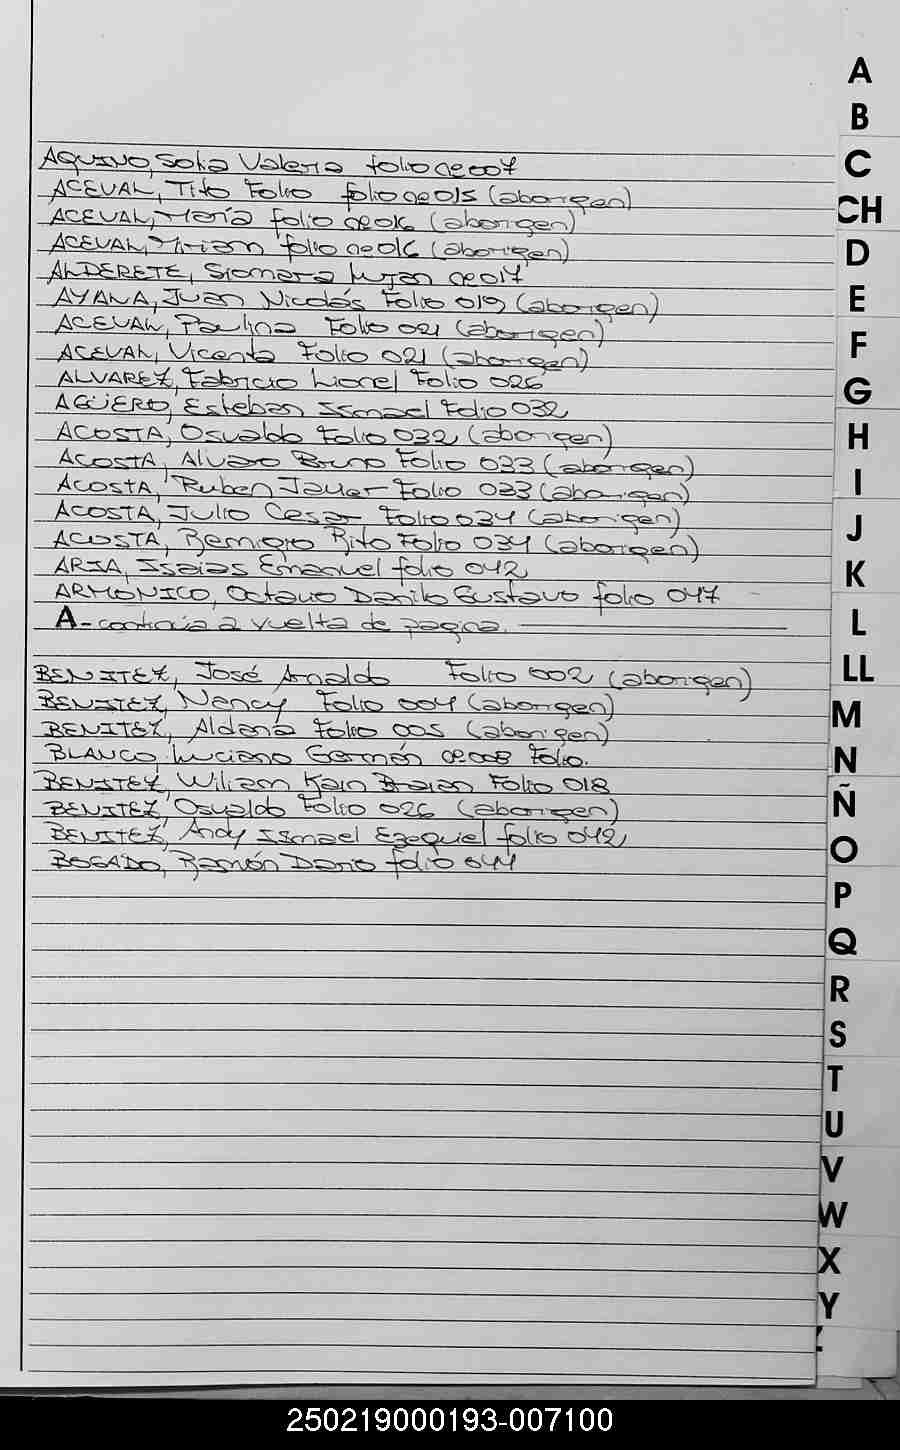 AQUINO, Sofia Valeria folio 00007
ACEVAL, Tito Folio folio 00015 (aborigen)
ACEVAL, María folio 00016 (aborigen)
ACEVAL, Mirian folio 00016 (aborigen)
ALDERETE, Siomara Lujan 00017
AYALA, Juan Nicolás Folio 019 (aborigen)
ACEVAL, Paulina Folio 021 (aborigen)
ACEVAL, Vicenta Folio 021 (aborigen)
ALVAREZ, Fabricio Lionel Folio 026
AGÜERO, Esteban Ismael Folio 032
ACOSTA, Osvaldo Folio 032 (aborigen)
ACOSTA, Alvaro Bruno Folio 033 (aborigen)
ACOSTA, Ruben Javier Folio 033 (aborigen)
ACOSTA, Julio Cesar Folio 034 (aborigen)
ACOSTA, Remigio Rito Folio 034 (aborigen)
ARIA, Isaias Emanuel folio 042
ARMONICO, Octavio Danilo Gustavo folio 047
A- continúa a vuelta de pagina.
BENITEZ, José Arnaldo Folio 002 (aborigen)
BENITEZ, Nancy Folio 004 (aborigen)
BENITEZ, Aldana Folio 005 (aborigen)
BLANCO Luciano Germán 00008 Folio.
BENITEZ, Wiliam Kain Braian Folio 018
BENITEZ, Osvaldo Folio 026 (aborigen)
BENITEZ, Andy Ismael Ezequiel folio 042
BOGADO, Ramón Dario folio 044
A
B
C
CH
D
E
F
G
H
I
J
K
L
LL
M
N
Ñ
O
P
Q
R
S
T
U
V
W
X
Y
250219000193-007100